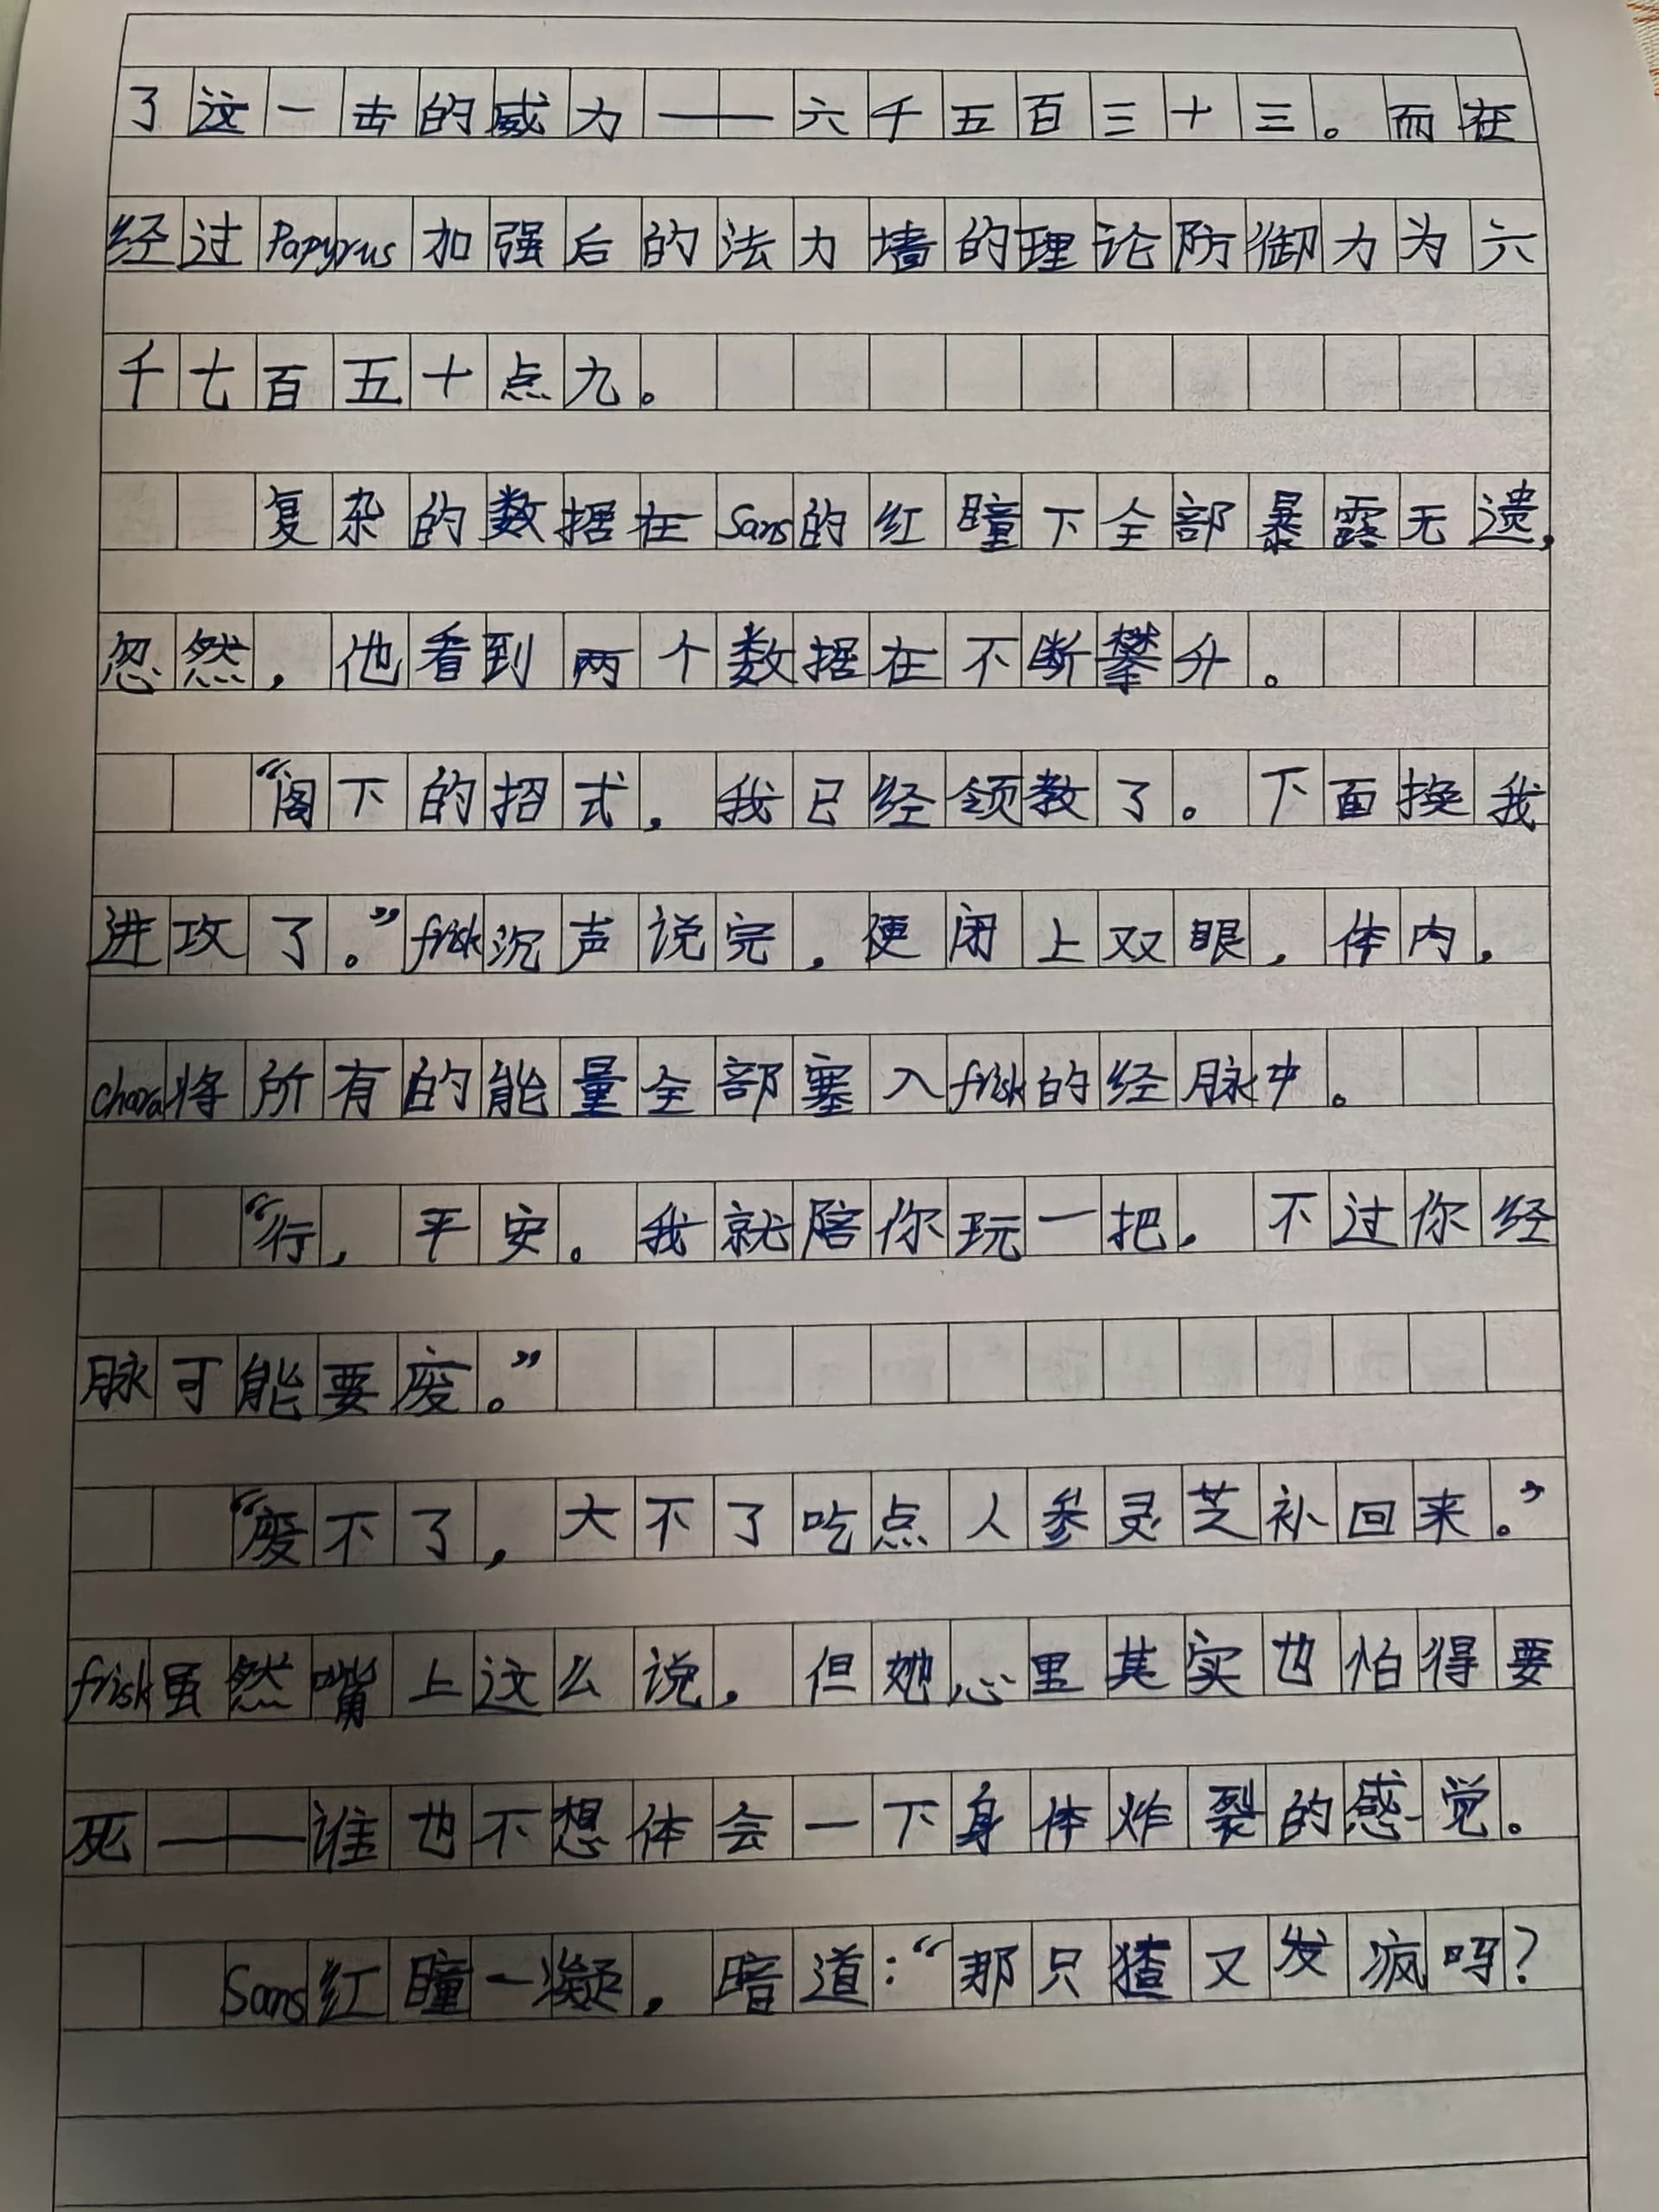 了这一击的威力——六千五百三十三。而在
经过Papyrus加强后的法力墙的理论防御力为六
千七百五十点九。
复杂的数据在Sans的红瞳下全部暴露无遗,
忽然,他看到两个数据在不断攀升。
“阁下的招式,我已经领教了。下面换我
进攻了。”frisk沉声说完,便闭上双眼,体内,
chara将所有的能量全部塞入frisk的经脉中。
“行,平安。我就陪你玩一把,不过你经
脉可能要废。”
“废不了,大不了吃点人参灵芝补回来。”
frisk虽然嘴上这么说,但她心里其实也怕得要
死——谁也不想体会一下身体炸裂的感觉。
Sans红瞳一凝,暗道:“那只猹又发疯吗?